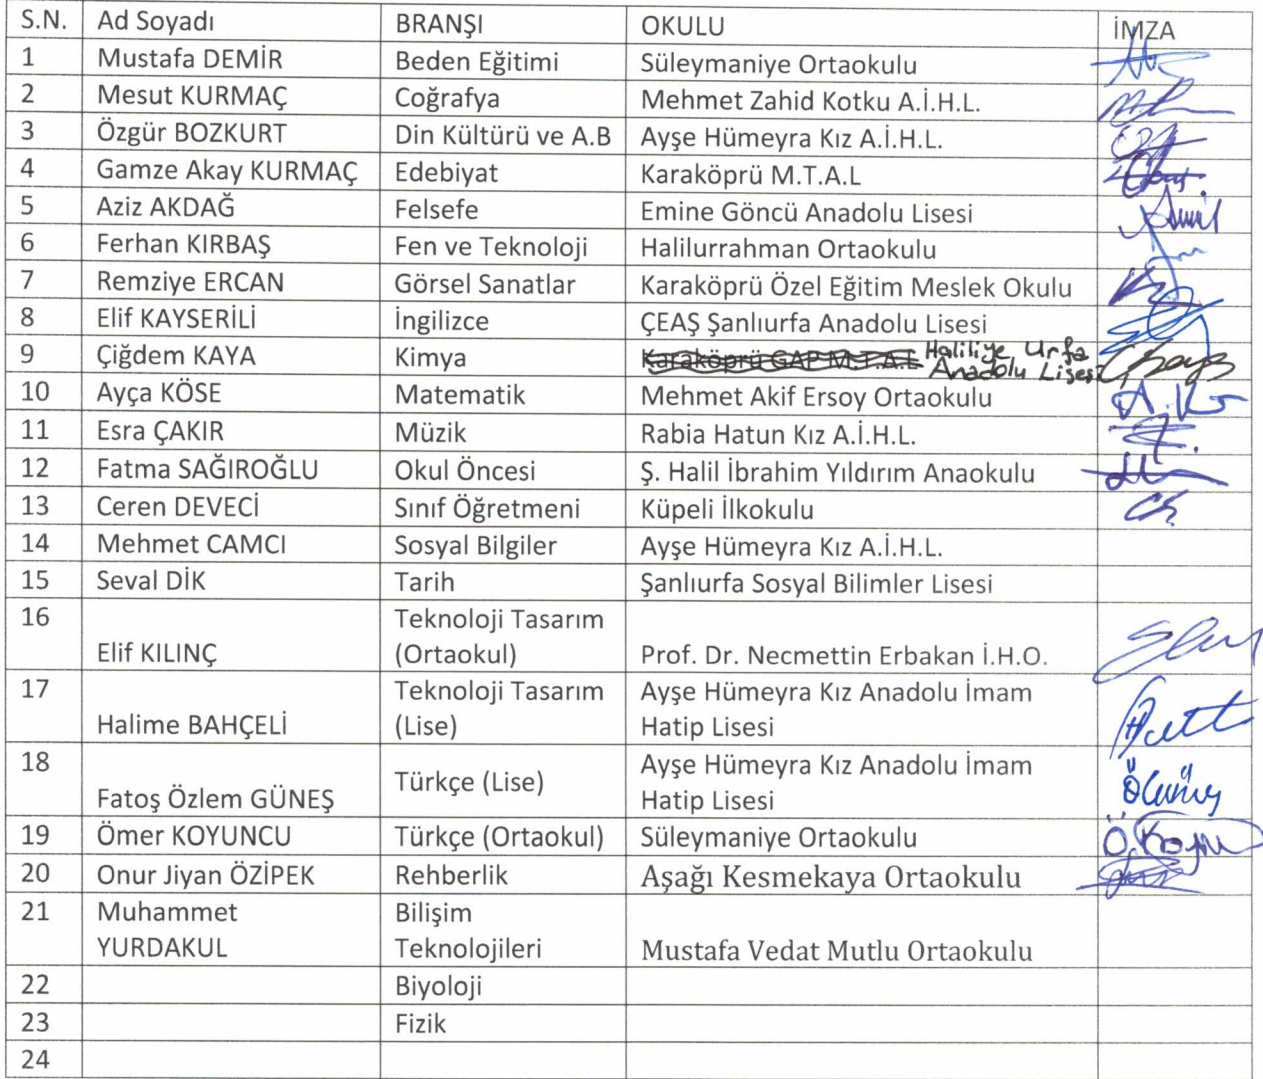 S.N. Ad Soyadı BRANŞI OKULU İMZA
1 Mustafa DEMİR Beden Eğitimi Süleymaniye Ortaokulu
2 Mesut KURMAÇ Coğrafya Mehmet Zahid Kotku A.İ.H.L.
3 Özgür BOZKURT Din Kültürü ve A.B Ayşe Hümeyra Kız A.İ.H.L.
4 Gamze Akay KURMAÇ Edebiyat Karaköprü M.T.A.L
5 Aziz AKDAĞ Felsefe Emine Göncü Anadolu Lisesi
6 Ferhan KIRBAŞ Fen ve Teknoloji Halilurrahman Ortaokulu
7 Remziye ERCAN Görsel Sanatlar Karaköprü Özel Eğitim Meslek Okulu
8 Elif KAYSERİLİ İngilizce ÇEAŞ Şanlıurfa Anadolu Lisesi
9 Çiğdem KAYA Kimya Karaköprü GAP M.T.A.L Haliliye Urfa
Anadolu Lisesi
10 Ayça KÖSE Matematik Mehmet Akif Ersoy Ortaokulu
11 Esra ÇAKIR Müzik Rabia Hatun Kız A.İ.H.L.
12 Fatma SAĞIROĞLU Okul Öncesi Ş. Halil İbrahim Yıldırım Anaokulu
13 Ceren DEVECİ Sınıf Öğretmeni Küpeli İlkokulu
14 Mehmet CAMCI Sosyal Bilgiler Ayşe Hümeyra Kız A.İ.H.L.
15 Seval DİK Tarih Şanlıurfa Sosyal Bilimler Lisesi
16 Teknoloji Tasarım
Elif KILINÇ (Ortaokul) Prof. Dr. Necmettin Erbakan İ.H.O.
17 Teknoloji Tasarım Ayşe Hümeyra Kız Anadolu İmam
Halime BAHÇELİ (Lise) Hatip Lisesi
18 Türkçe (Lise) Ayşe Hümeyra Kız Anadolu İmam
Fatoş Özlem GÜNEŞ Hatip Lisesi
19 Ömer KOYUNCU Türkçe (Ortaokul) Süleymaniye Ortaokulu
20 Onur Jiyan ÖZİPEK Rehberlik Aşağı Kesmekaya Ortaokulu
21 Muhammet Bilişim
YURDAKUL Teknolojileri Mustafa Vedat Mutlu Ortaokulu
22 Biyoloji
23 Fizik
24